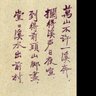 萬山不許一溪奔
攔得溪聲日夜喧
到得前頭山腳盡
堂堂溪水出前村